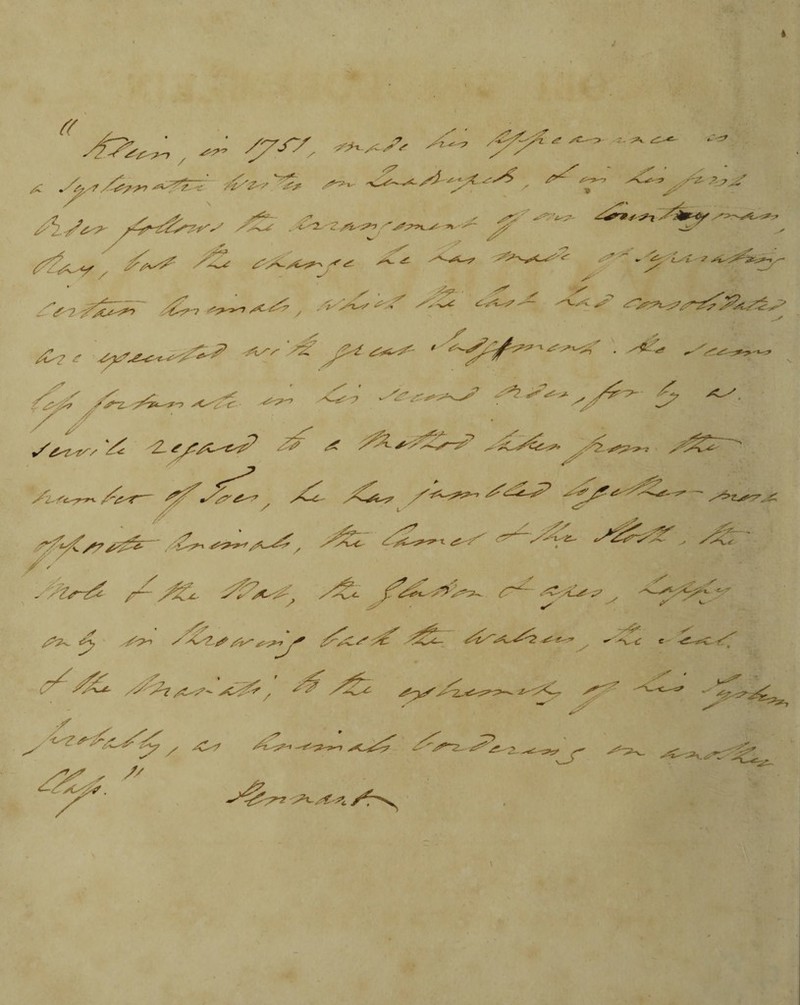 "Klein, in 1751, made his appearance as
a Systematic Writer on Quadrupeds, & in his first
Order follows the Arrangement of our Countryman,
Ray, but the change he has made of separating
certain Animals, which the last had consolidated,
are executed with great Judgment. He seems
less fortunate in his second Order, for by a
servile regard to a Method taken from the
number of Toes, he has jumbled together most
opposite Animals, the Camel & the Sloth, the
Mole & the Bat, the Glutton & apes, happy
only in throwing back the Walrus, the Seal
& the Manati, to the extremity of his System
probably, as Animals bordering on another
Class."
Pennant.